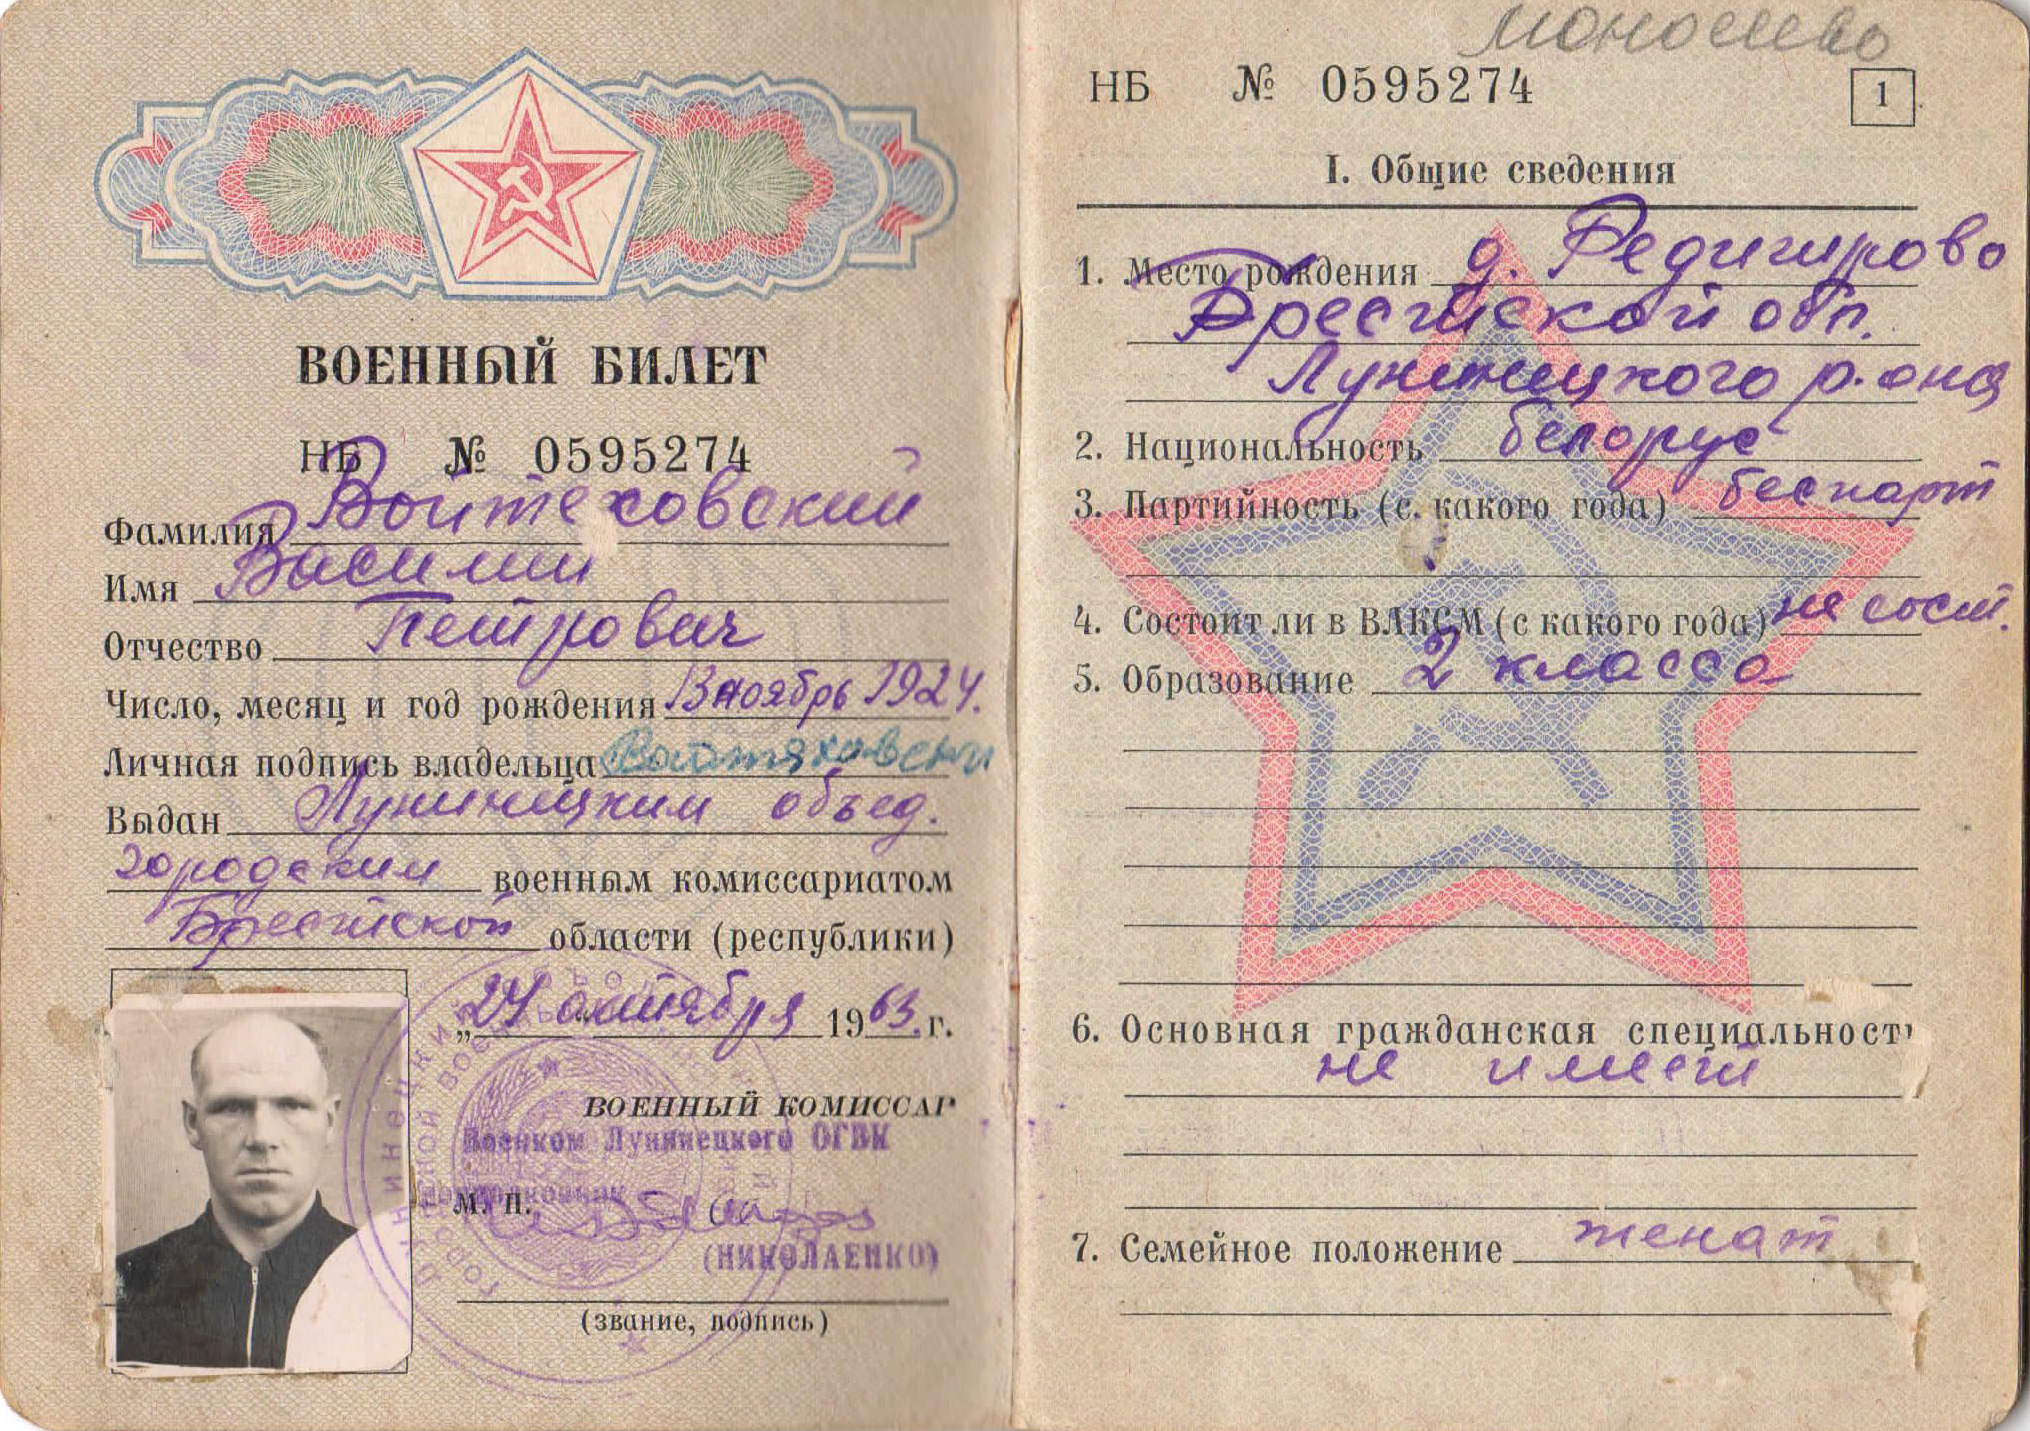 ВОЕННЫЙ БИЛЕТ
НБ № 0595274
Фамилия Войтеховский
Имя Василий
Отчество Петрович
Число, месяц и год рождения 13 ноябрь 1924.
Личная подпись владельца
Выдан Лунинецким объед.
городским военным комиссариатом
Брестской области (республики)
„24 октября 1963 г.
ВОЕННЫЙ КОМИССАР
Военком Лунинецкого ОГВК
М. П.
(НИКОЛАЕНКО)
(звание, подпись)
НБ № 0595274
1
I. Общие сведения
1. Место рождения д. Редигерово
Брестской обл.
Лунинецкого р-она
2. Национальность белорус
3. Партийность (с какого года) беспарт
4. Состоит ли в ВЛКСМ (с какого года) не сост.
5. Образование 2 класса
6. Основная гражданская специальност
не имеет
7. Семейное положение женат